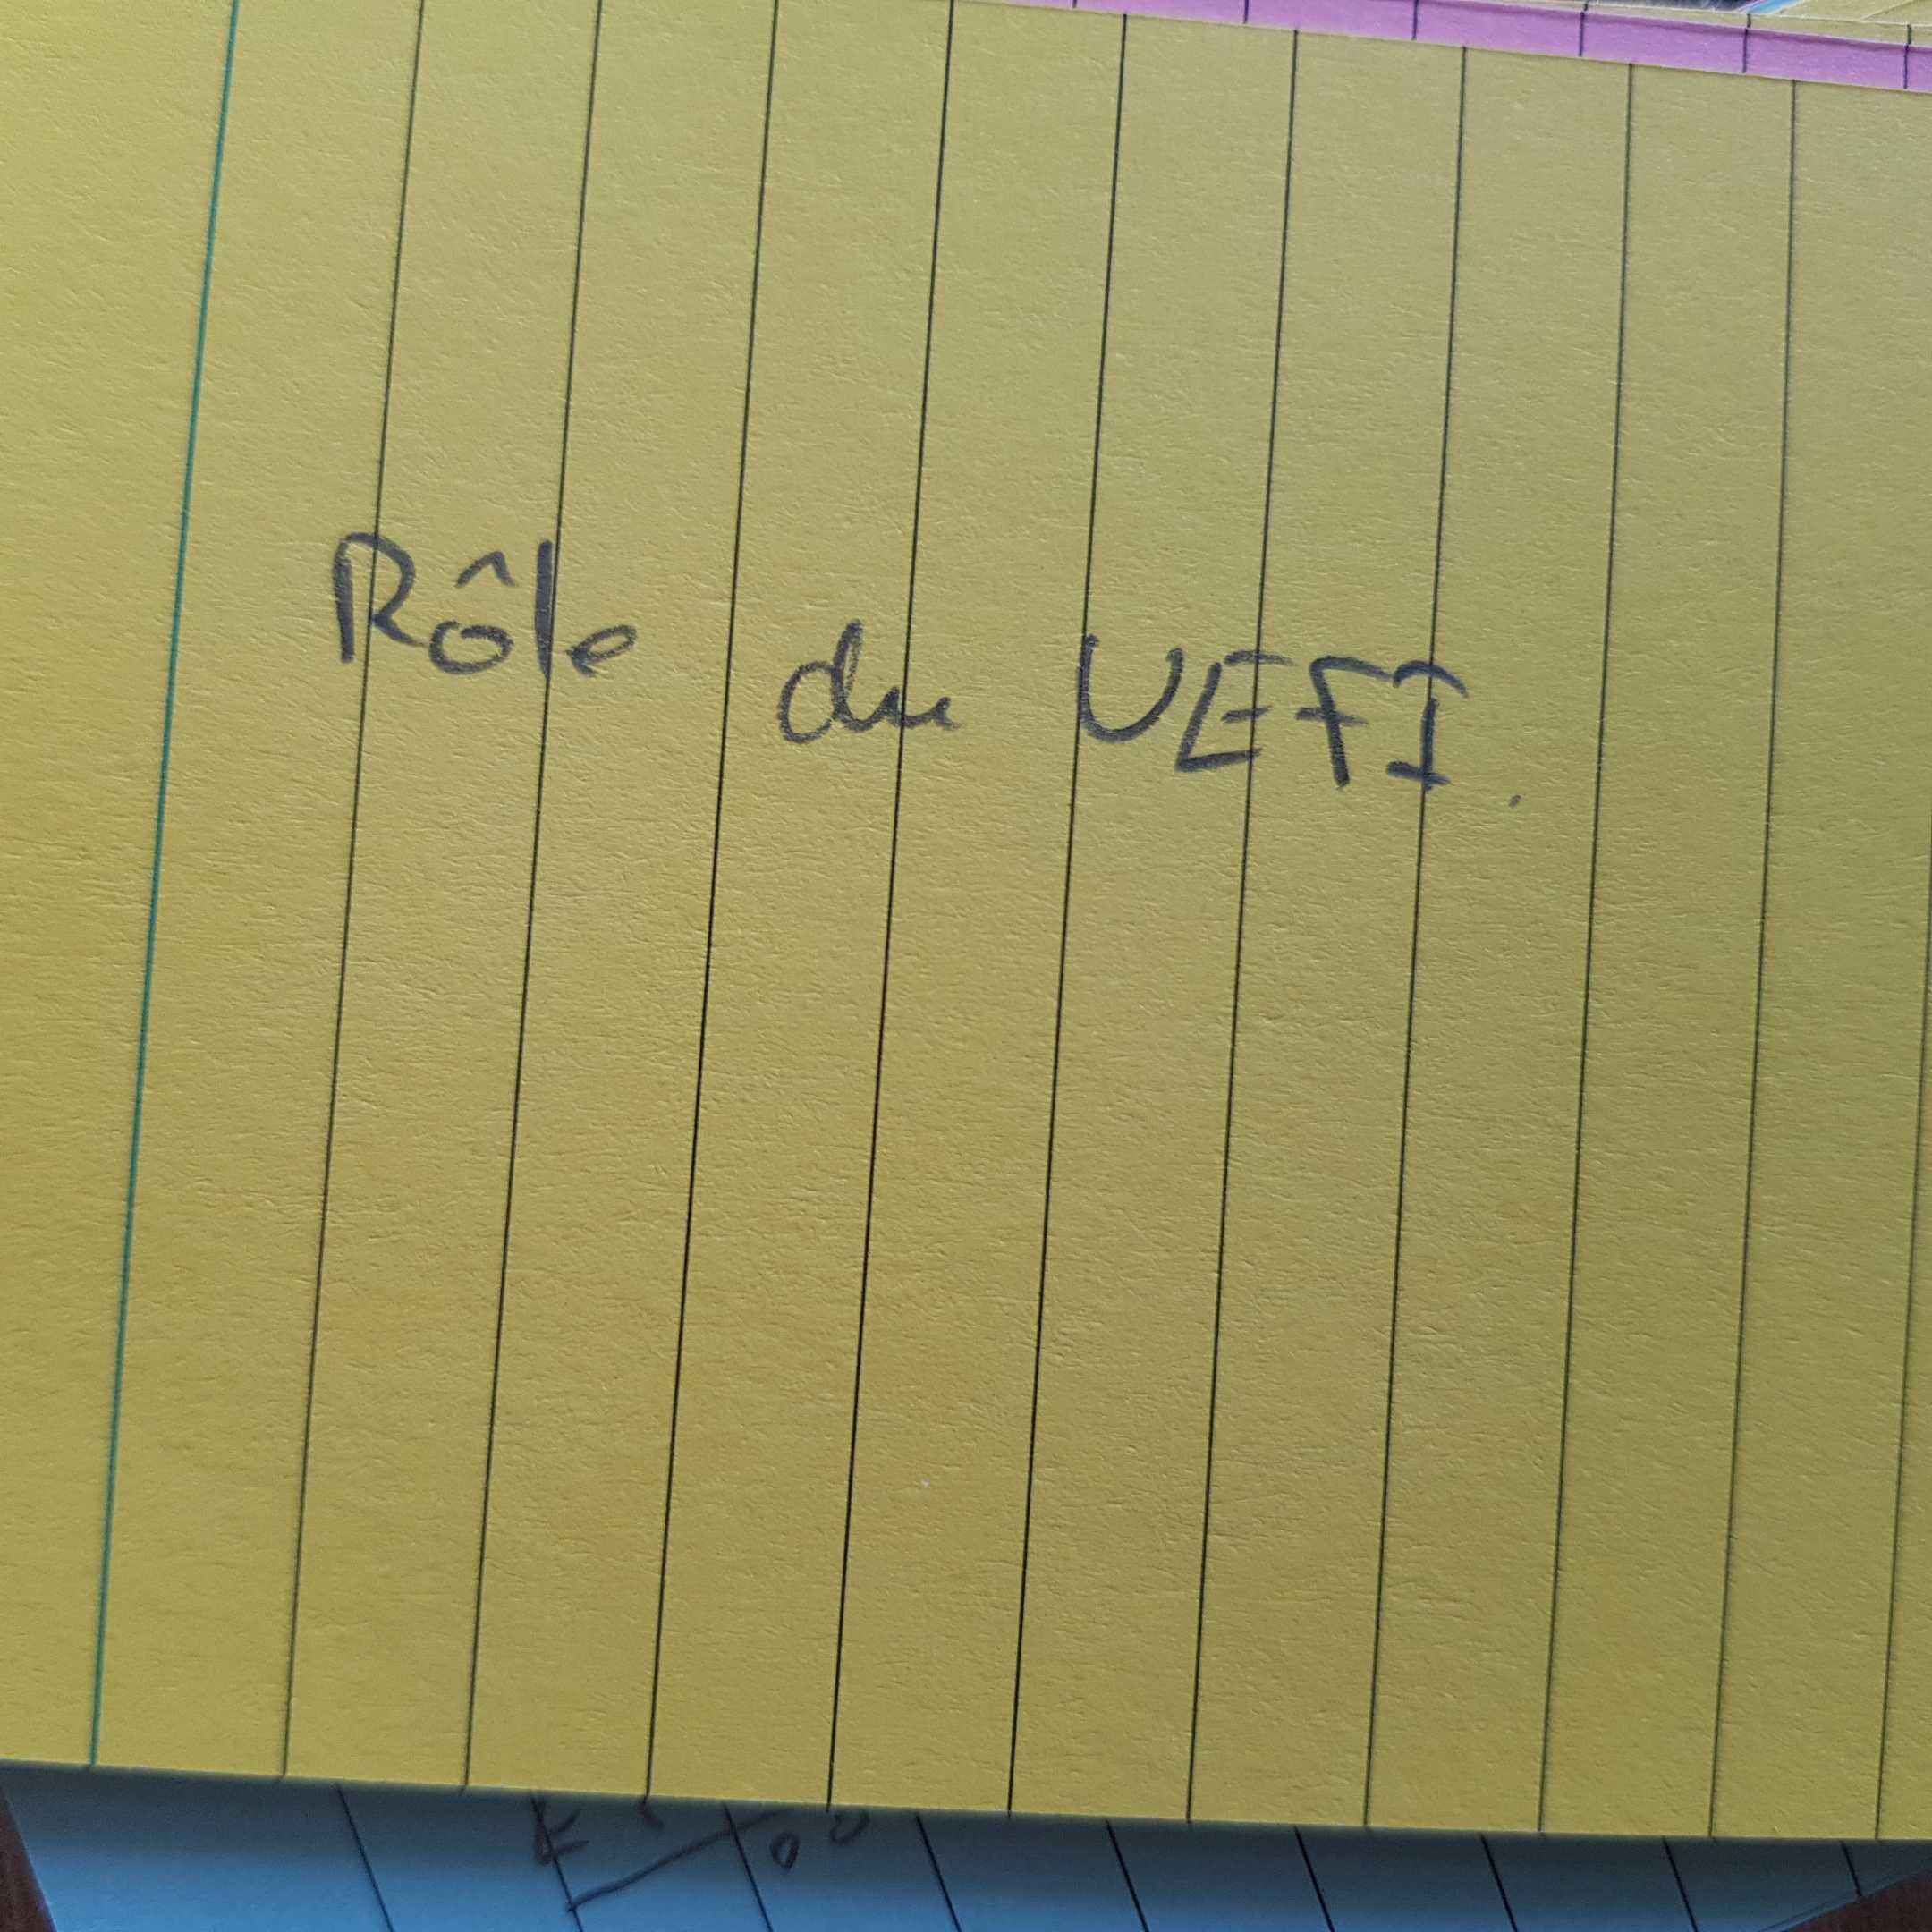 Rôle du UEFI.